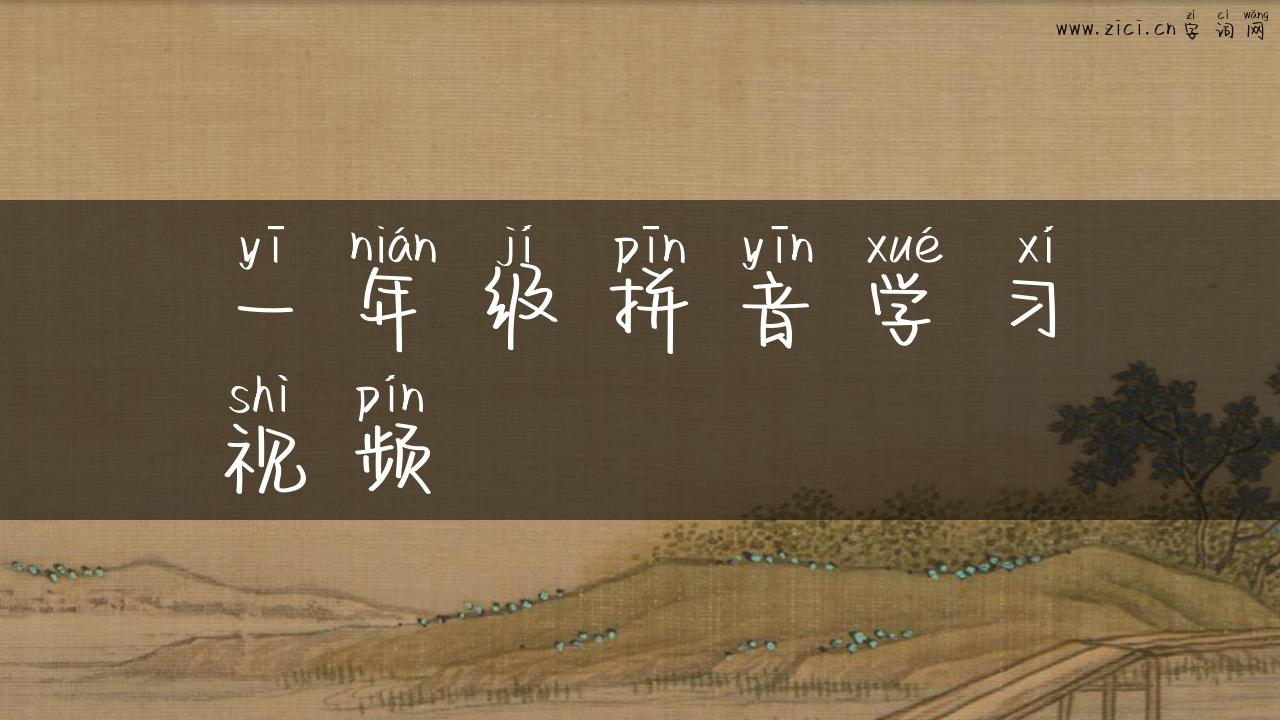 zì cí wǎng
www.zici.cn 字词网
yī nián jí pīn yīn xué xí
一年级拼音学习
shì pín
视频